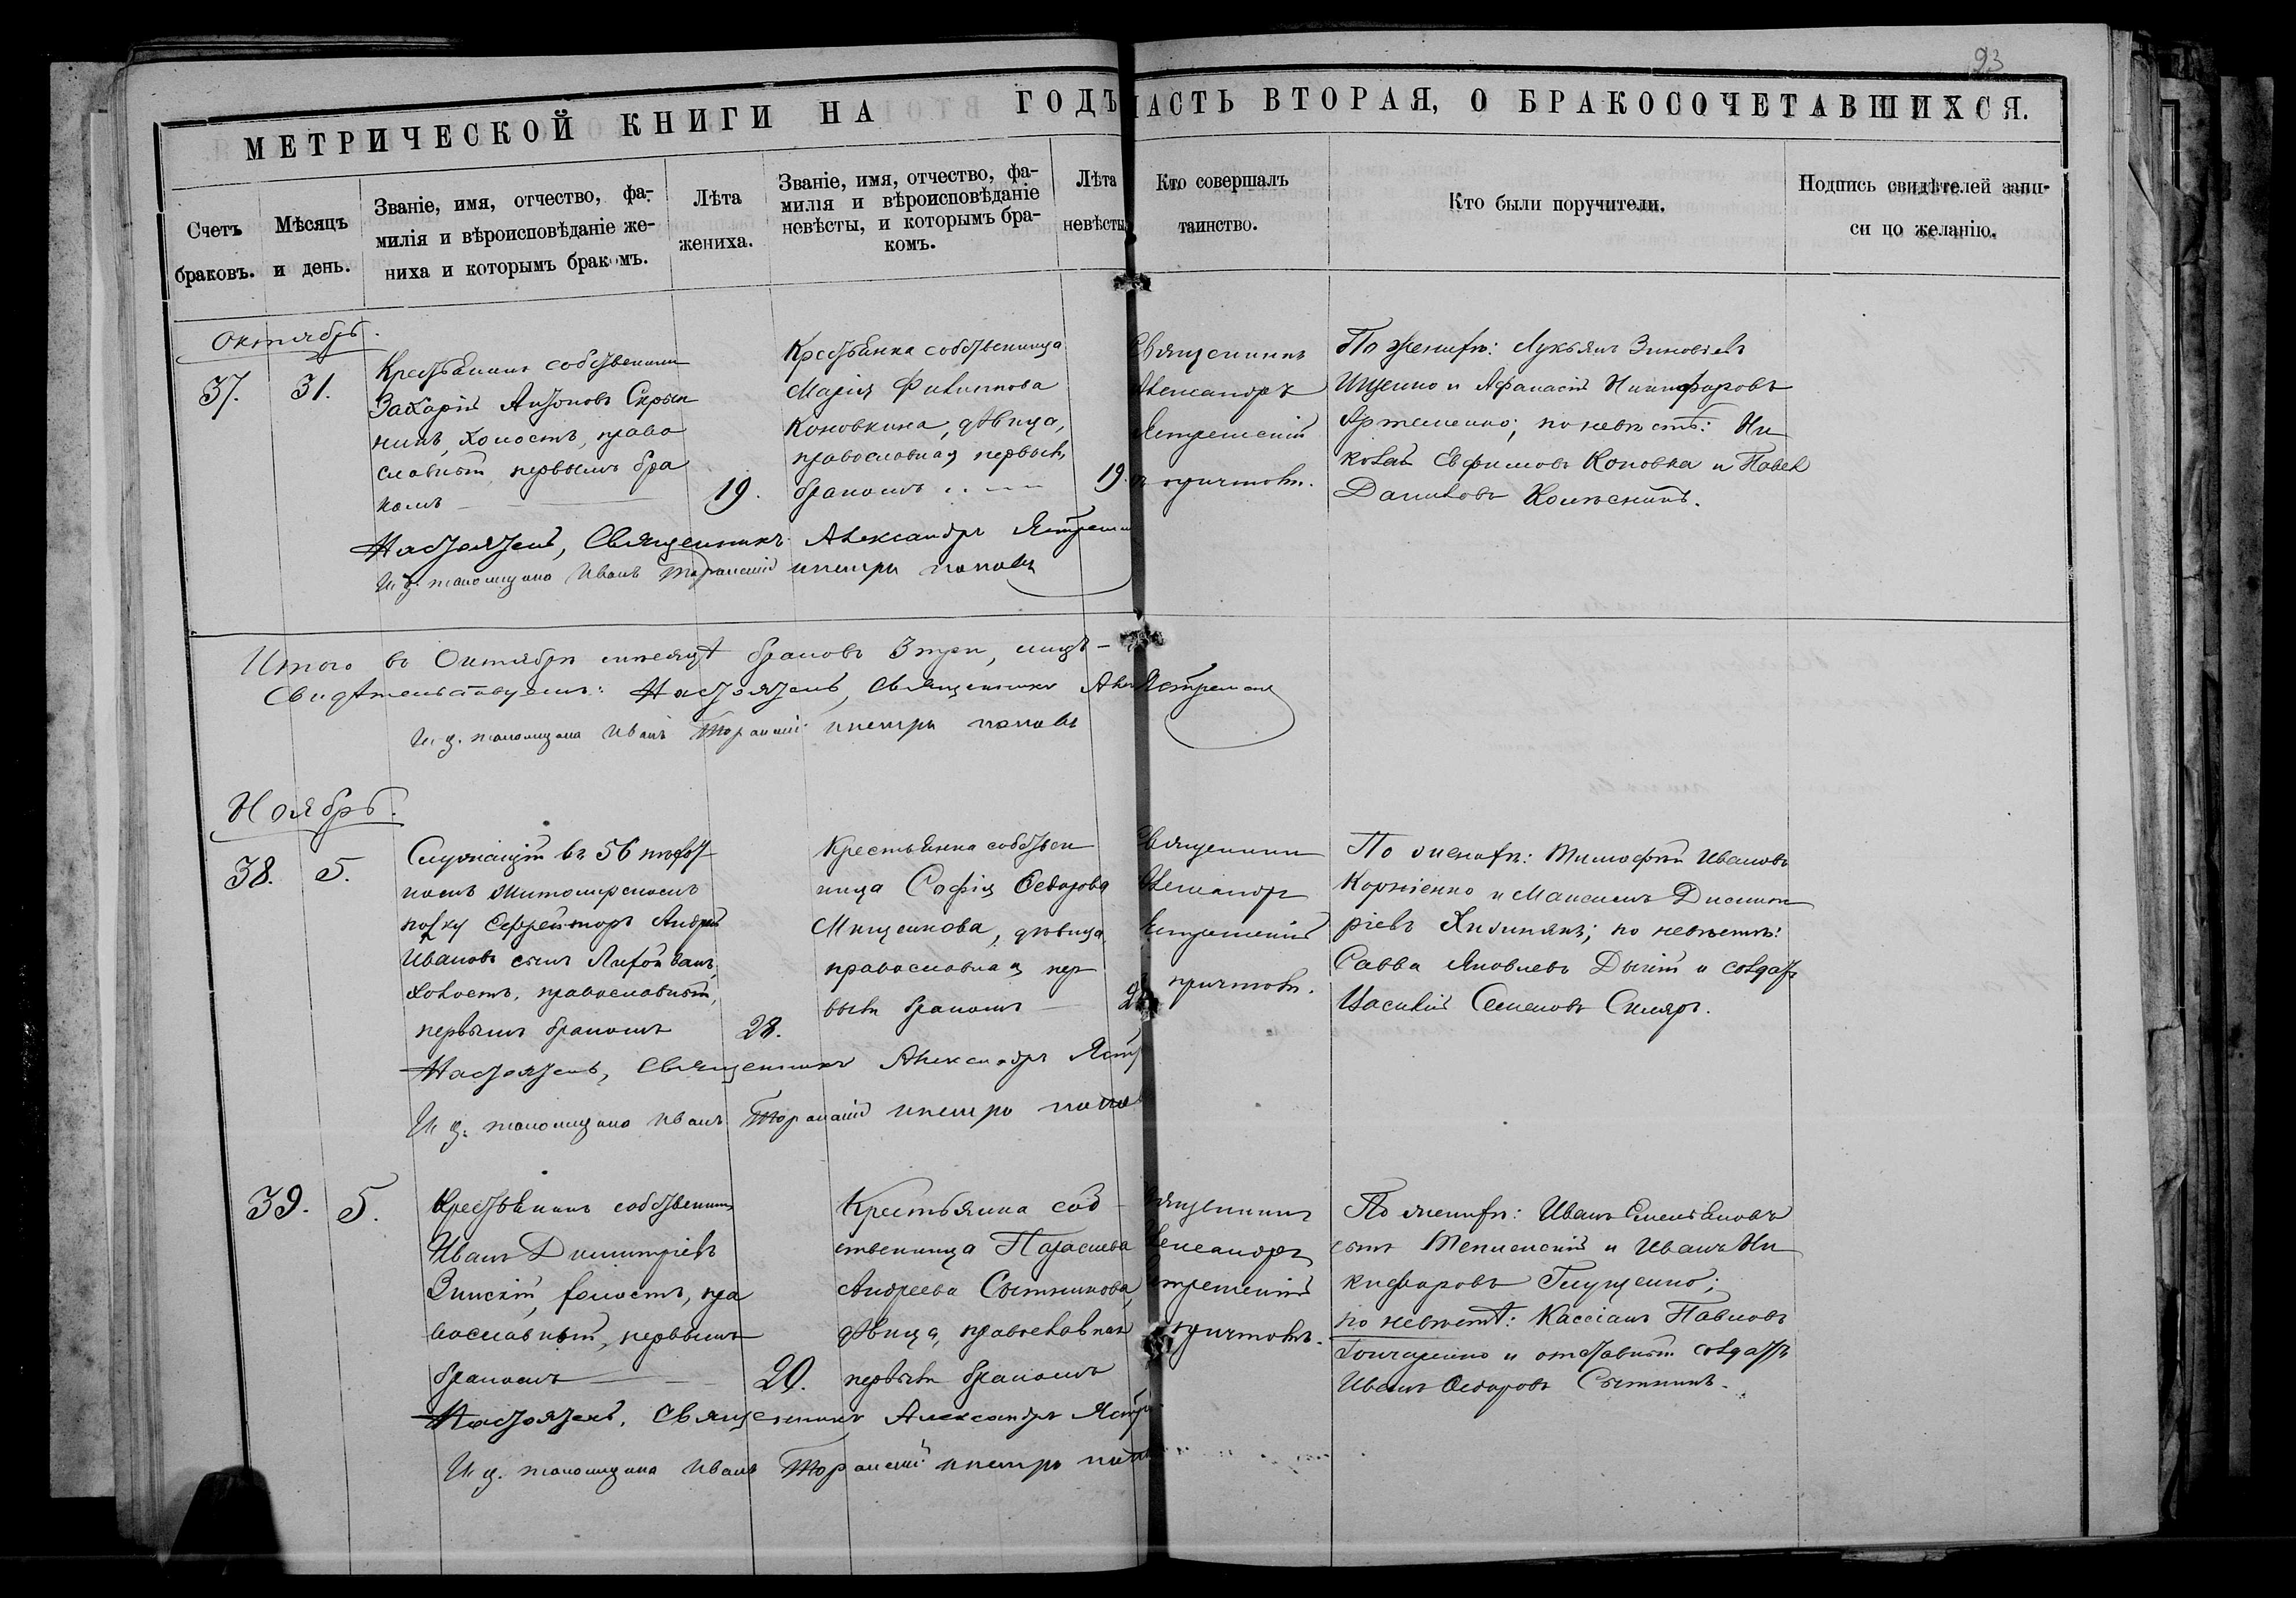 93
МЕТРИЧЕСКОЙ КНИГИ НА ГОДЪ
ЧАСТЬ ВТОРАЯ, О БРАКОСОЧЕТАВШИХСЯ.
Счетъ браковъ.
Мѣсяцъ и день.
Званіе, имя, отчество, фа-
милія и вѣроисповѣданіе же-
ниха и которымъ бракомъ.
Лѣта
жениха.
Званіе, имя, отчество, фа-
милія и вѣроисповѣданіе
невѣсты, и которымъ бра-
комъ.
Лѣта
невѣсты
Кто совершалъ
таинство.
Кто были поручители.
Подпись свидѣтелей запи-
си по желанію.
Октябрь.
37.
31.
Крестьянинъ собственни
Захарій Антоновъ Скрын
никъ, холостъ, право
славный, первымъ бра
комъ
19.
Крестьянка собственница
Марія Филиппова
Коновкина, дѣвица,
православная, первымъ
бракомъ
19.
Священникъ
Александръ
Ястремскій
съ причтомъ.
По женихѣ: Лукьянъ Зиновіевъ
Ищенко и Афанасій Никифоровъ
Артеменко; по невѣстѣ: Ни
колай Ефимовъ Коновка и Павел
Даниловъ Колѣсникъ.
Настоятель, Священникъ Александръ Ястремск
И. д. псаломщика Иванъ
Итого въ Октябрѣ мѣсяцѣ браковъ 3 три,
Свидѣтельствуемъ: Настоятель, Священникъ Ал Ястремскій
И. д. псаломщика Иванъ
Ноябрь.
38.
5.
Служащій въ 56 пѣхот
номъ Житомирскомъ
полку Ефрейторъ Андрей
Ивановъ сынъ
холостъ, православный,
первымъ бракомъ
28.
Крестьянка собствен
ница Софія Ѳедорова
Мищенкова, дѣвица,
православная, пер
вымъ бракомъ
Священникъ
Александръ
Ястремскій
причтомъ.
По женихѣ: Тимофей Ивановъ
Корніенко и Максимъ Димит
ріевъ; по невѣстѣ:
Савва Яковлевъ и солдатъ
Василій Семеновъ Скляръ.
Настоятель, Священникъ Александръ Ястр
И. д. псаломщика Иванъ
39.
5.
Крестьянинъ собственникъ
Иванъ Димитріевъ
холостъ, пра
вославный, первымъ
бракомъ
20.
Крестьянка соб
ственница Параскева
Андреева Сытникова,
дѣвица, православная
первымъ бракомъ
Священникъ
Александръ
Ястремскій
причтомъ.
По женихѣ: Иванъ Емельяновъ
сынъ и Иванъ Ни
кифоровъ Глущенко;
по невѣстѣ: Кассіанъ Павловъ
Гончаренко и отставный солдатъ
Иванъ Ѳедоровъ Сытникъ.
Настоятель, Священникъ Александръ Ястр
И. д. псаломщика Иванъ